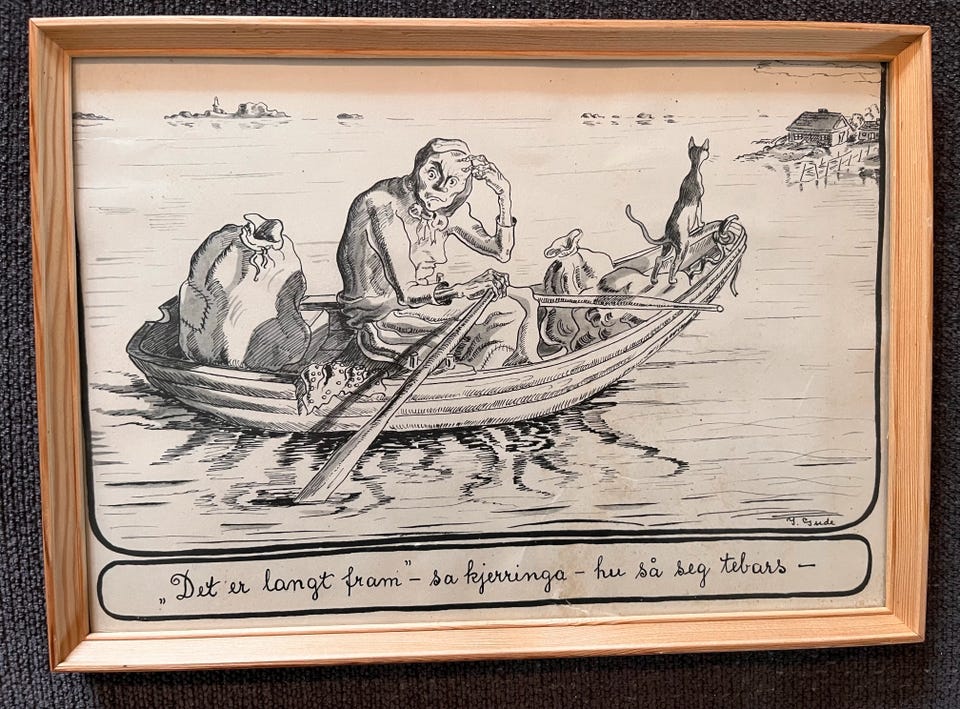 Y. Gude
„Det er langt fram” – sa kjerringa – hu så seg tebars –